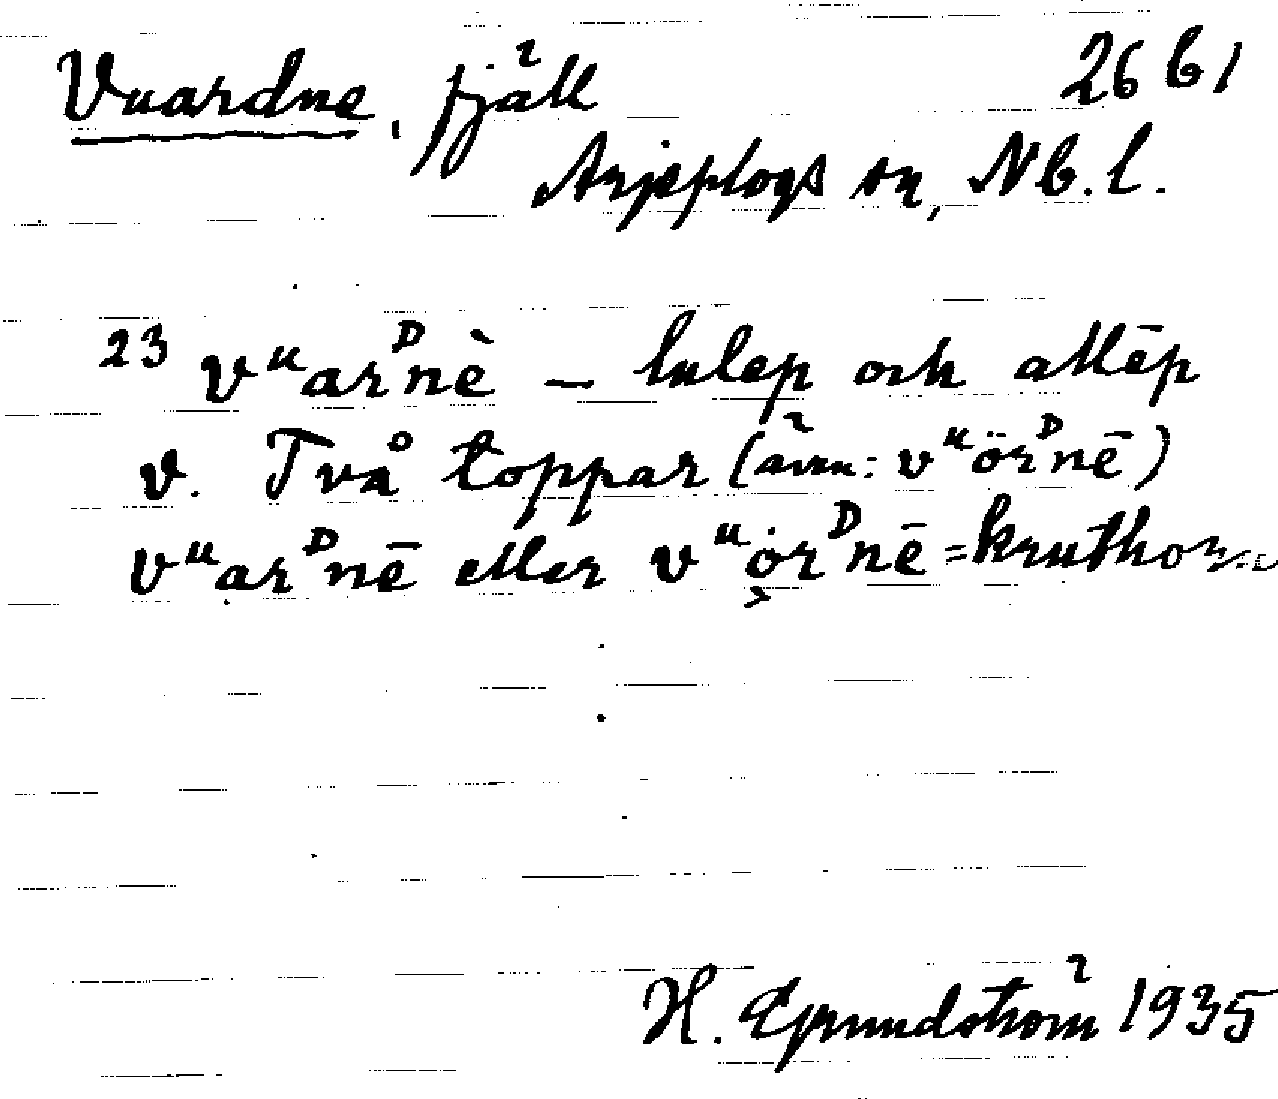 Vuardne, fjäll 26 b 1
Arjeplogs sn, Nb. l.
23 vᵘarᴰnè – lulep och allēp
v. Två toppar (även: vᵘörᴰnē)
vᵘarᴰnē eller vᵘȯrᴰnē = kruthorn
H. Grundström 1935